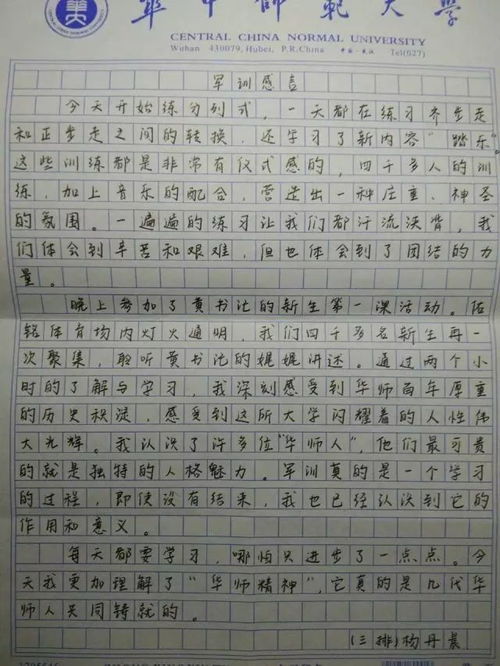 華中師範大學
CENTRAL CHINA NORMAL UNIVERSITY
Wuhan 430079, Hubei, P.R.China 中国·武汉 Tel(027)
军训感言
今天开始练分列式，一天都在练习齐步走
和正步走之间的转换，还学习了新内容“踏乐”
这些训练都是非常有仪式感的，四千多人的训
练，加上音乐的配合，营造出一种庄重、神圣
的氛围。一遍遍的练习让我们都汗流浃背，我
们体会到辛苦和艰难，但也体会到了团结的力
量。
晚上参加了黄书记的新生第一课活动。佑
铭体育场内灯火通明，我们四千多名新生再一
次聚集，聆听黄书记的娓娓讲述。通过两个小
时的了解与学习，我深刻感受到华师百年厚重
的历史积淀，感受到这所大学闪耀着的人性伟
大光辉。我认识了许多位“华师人”，他们最可贵
的就是独特的人格魅力。军训真的是一个学习
的过程，即使没有结束，我也已经认识到它的
作用和意义。
每天都要学习，哪怕只进步了一点点。今
天我更加理解了“华师精神”，它真的是几代华
师人共同铸就的。
（三排）杨丹晨